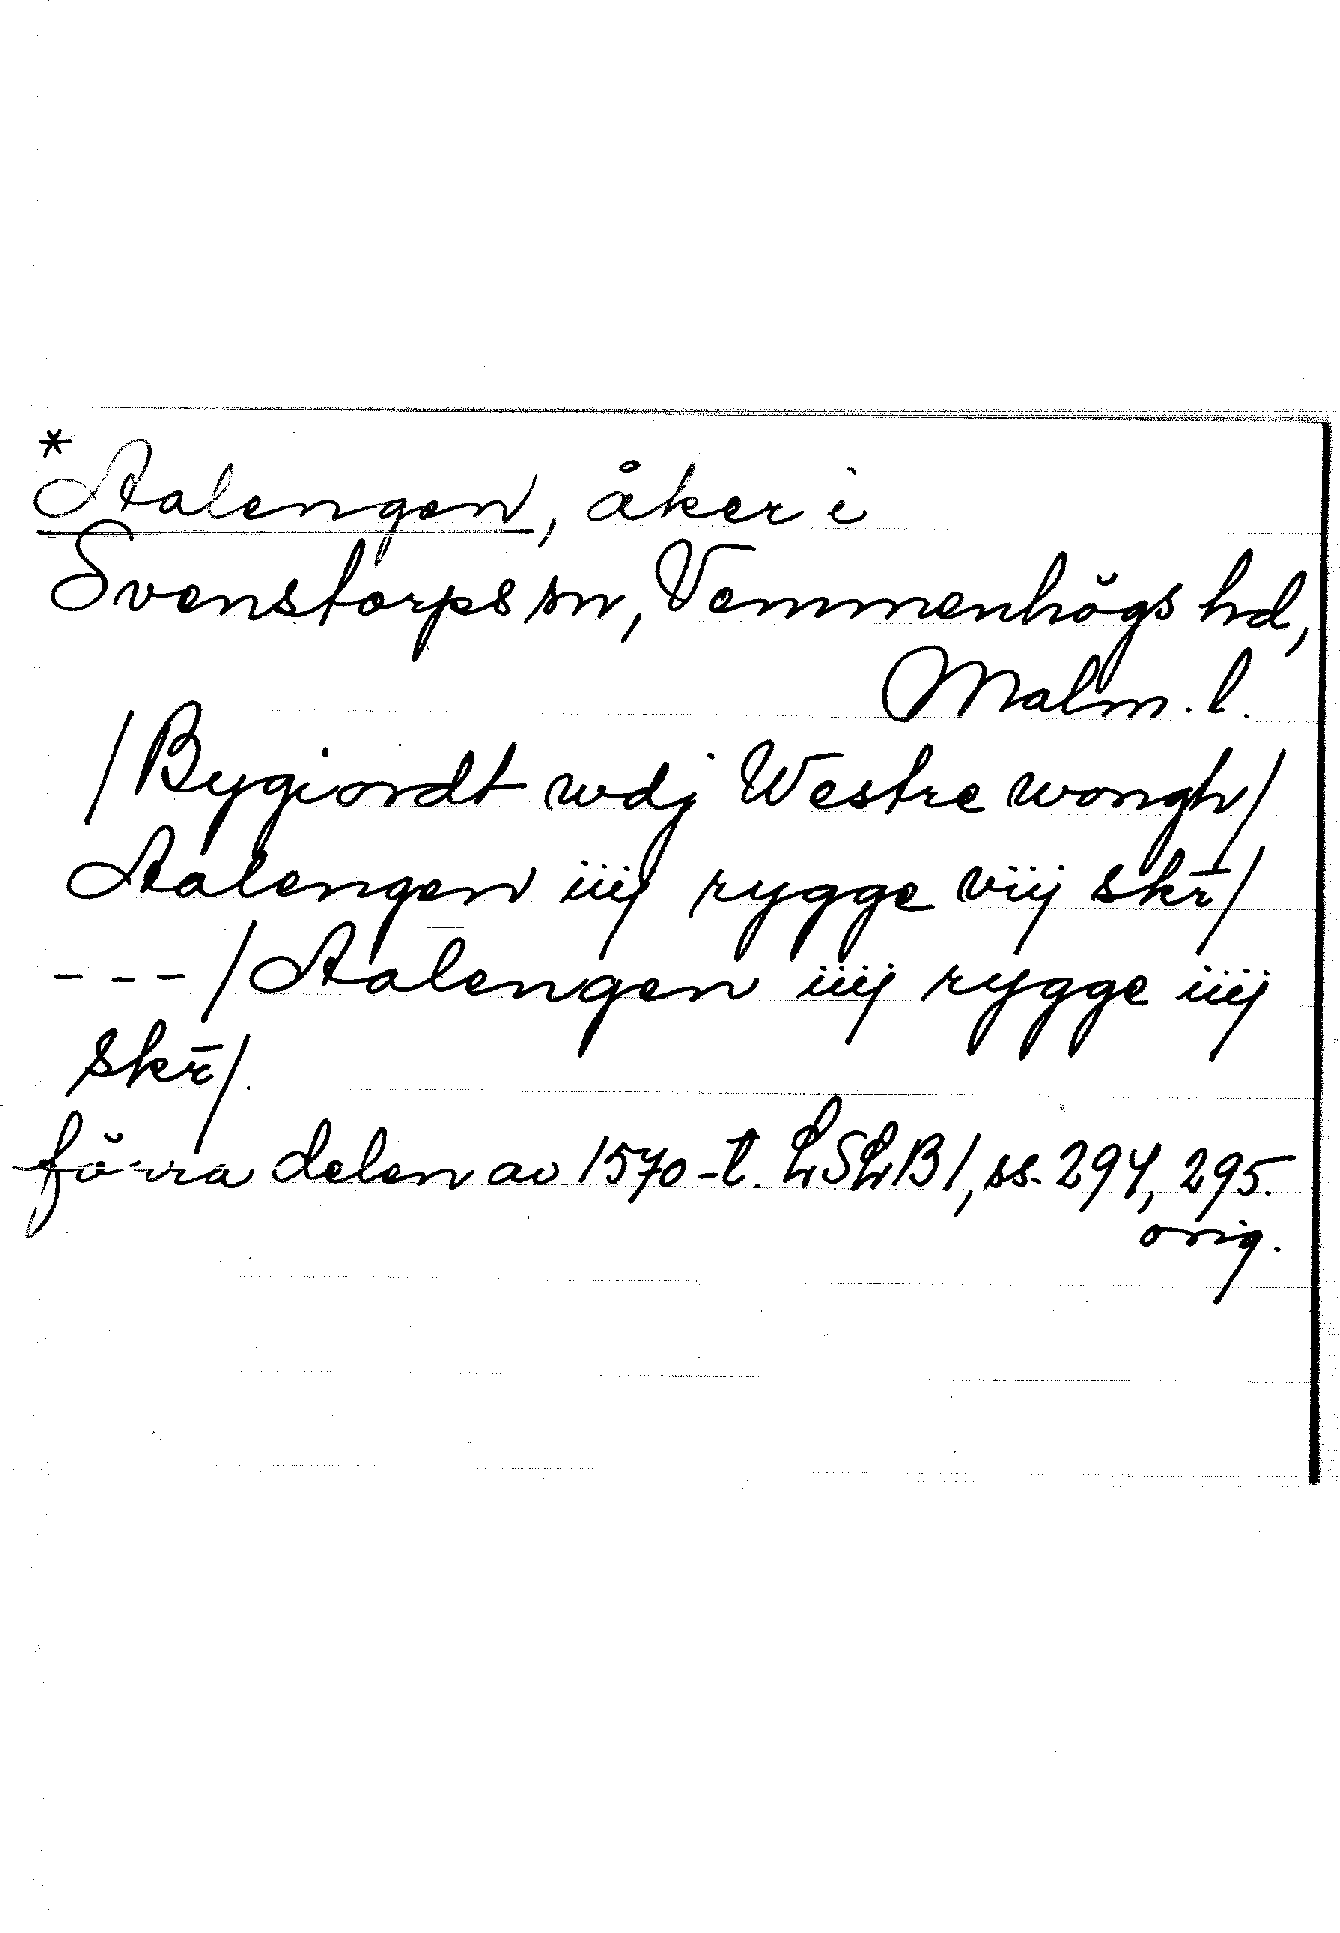 *Aalengen, åker i
Svenstorps sn, Vemmenhögs hd,
Malm. l.
/Bygiordt wdj Westre wongh/
Aalengen iiij rygge viij skr̄/
- - - /Aalengen iiij rygge iiij
skr̄/.
förra delen av 1570-t. LSLB1, ss. 294, 295.
orig.